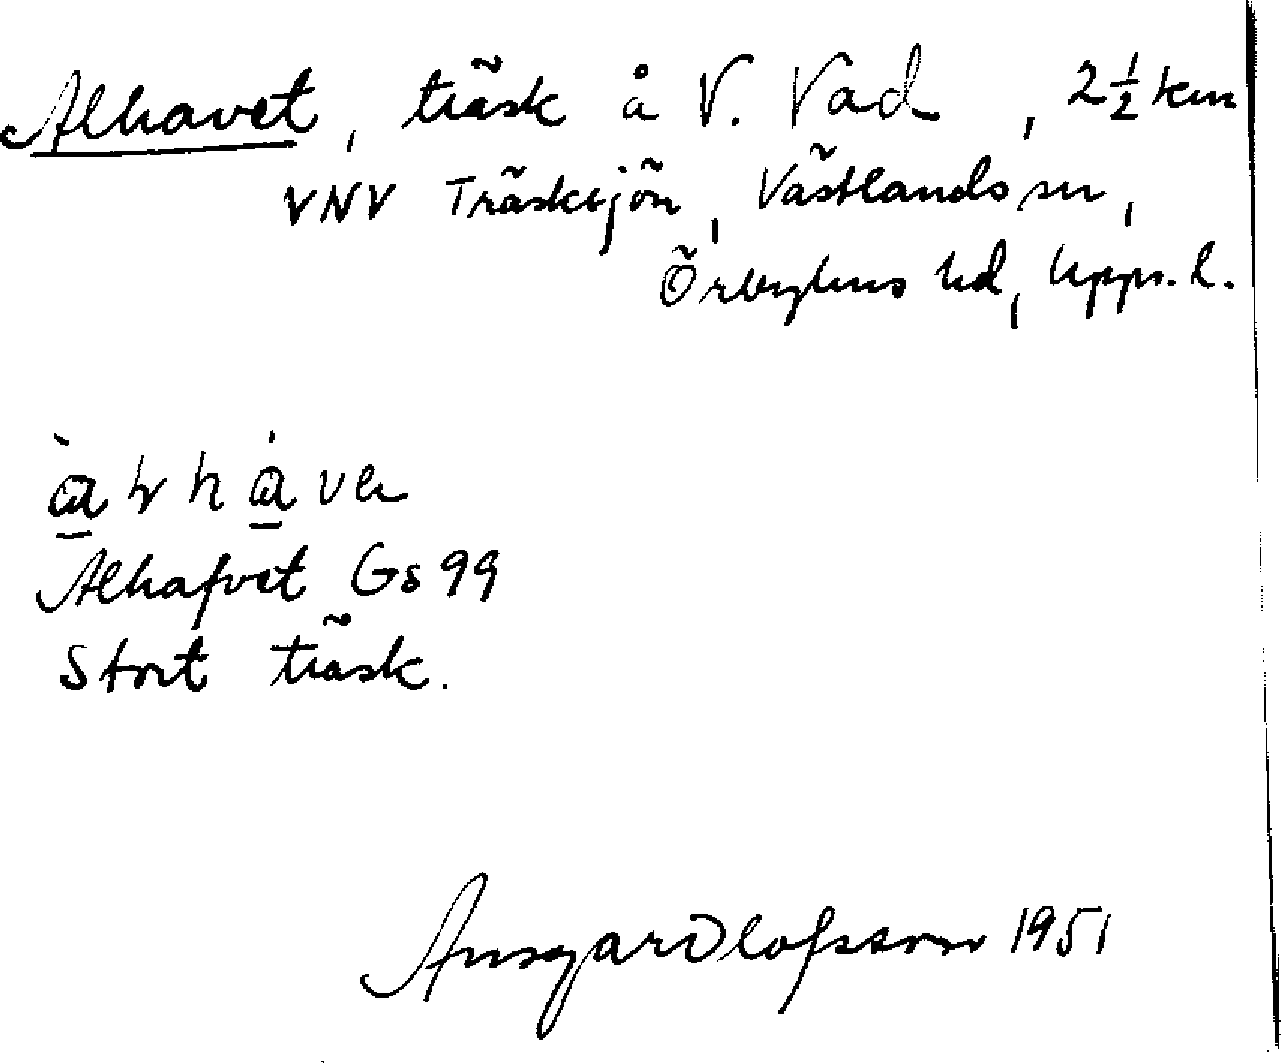 Alhavet, träsk å V. Vad, 2½ km
VNV Träsksjön, Västlands sn,
Örbyhus hd, Upps. l.
Alhafvet Gs 99
Stort träsk.
Ansgar Olofsson 1951